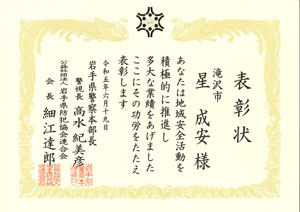 表彰状
滝沢市
星 成安 様
あなたは地域安全活動を
積極的に推進し
多大な業績をあげました
ここにその功労をたたえ
表彰します
令和五年六月十九日
岩手県警察本部長
警視長 高水紀美彦
公益社団法人 岩手県防犯協会連合会
会長 細江達郎